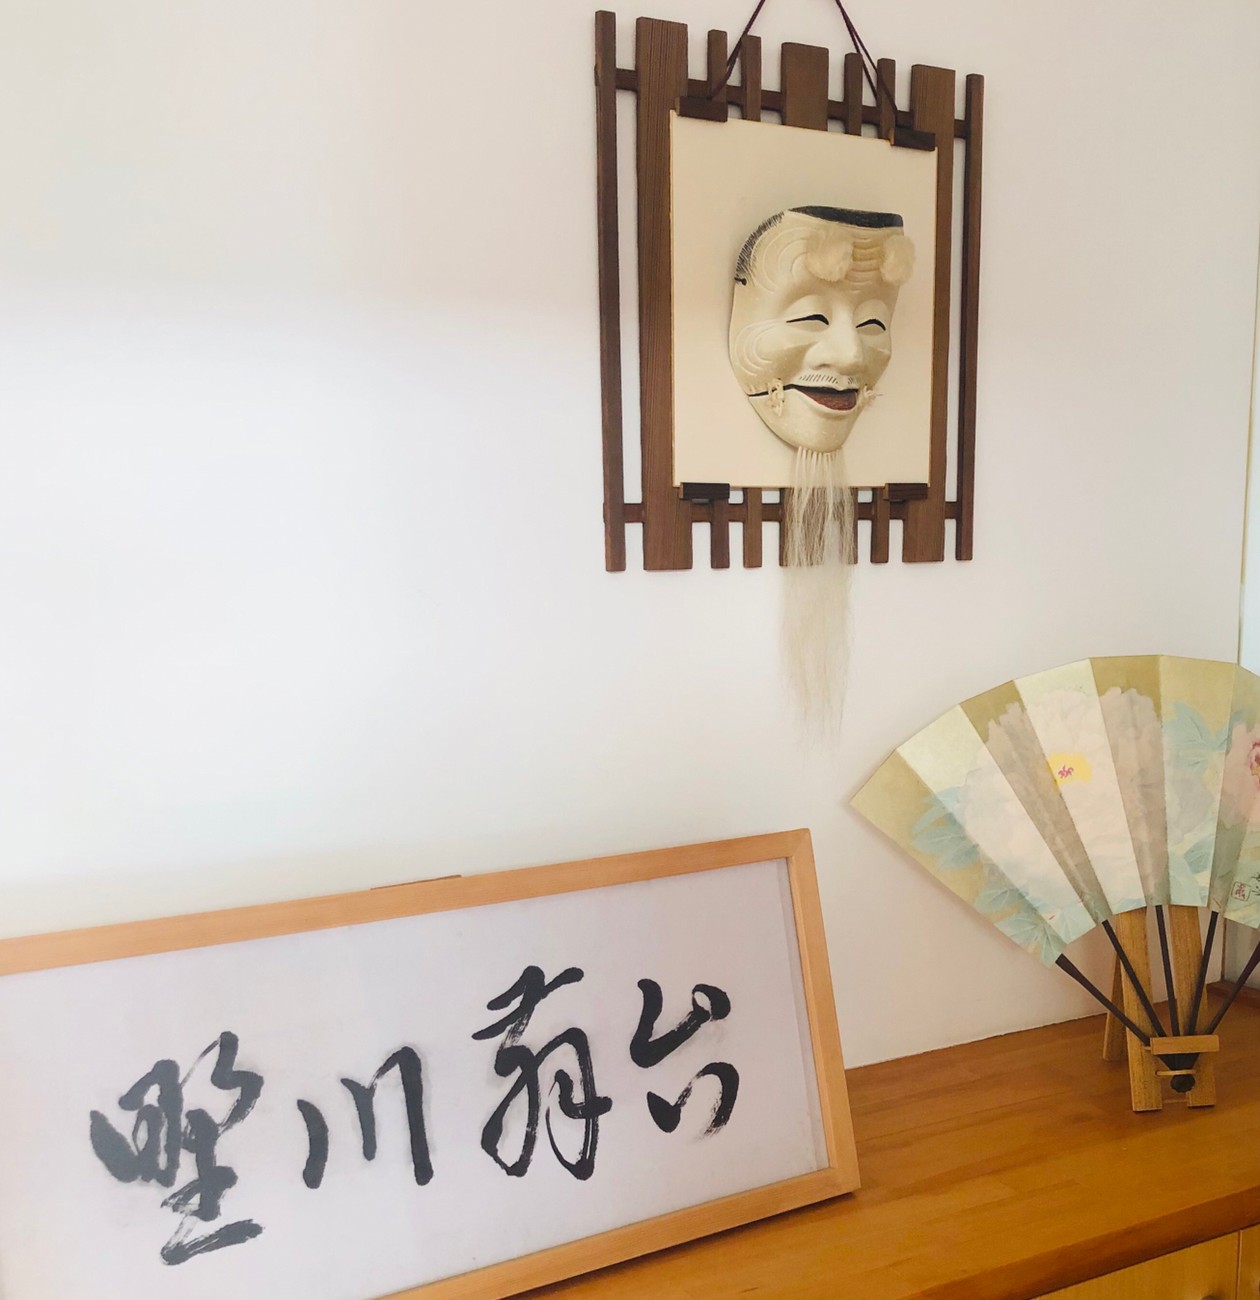 野川舞台